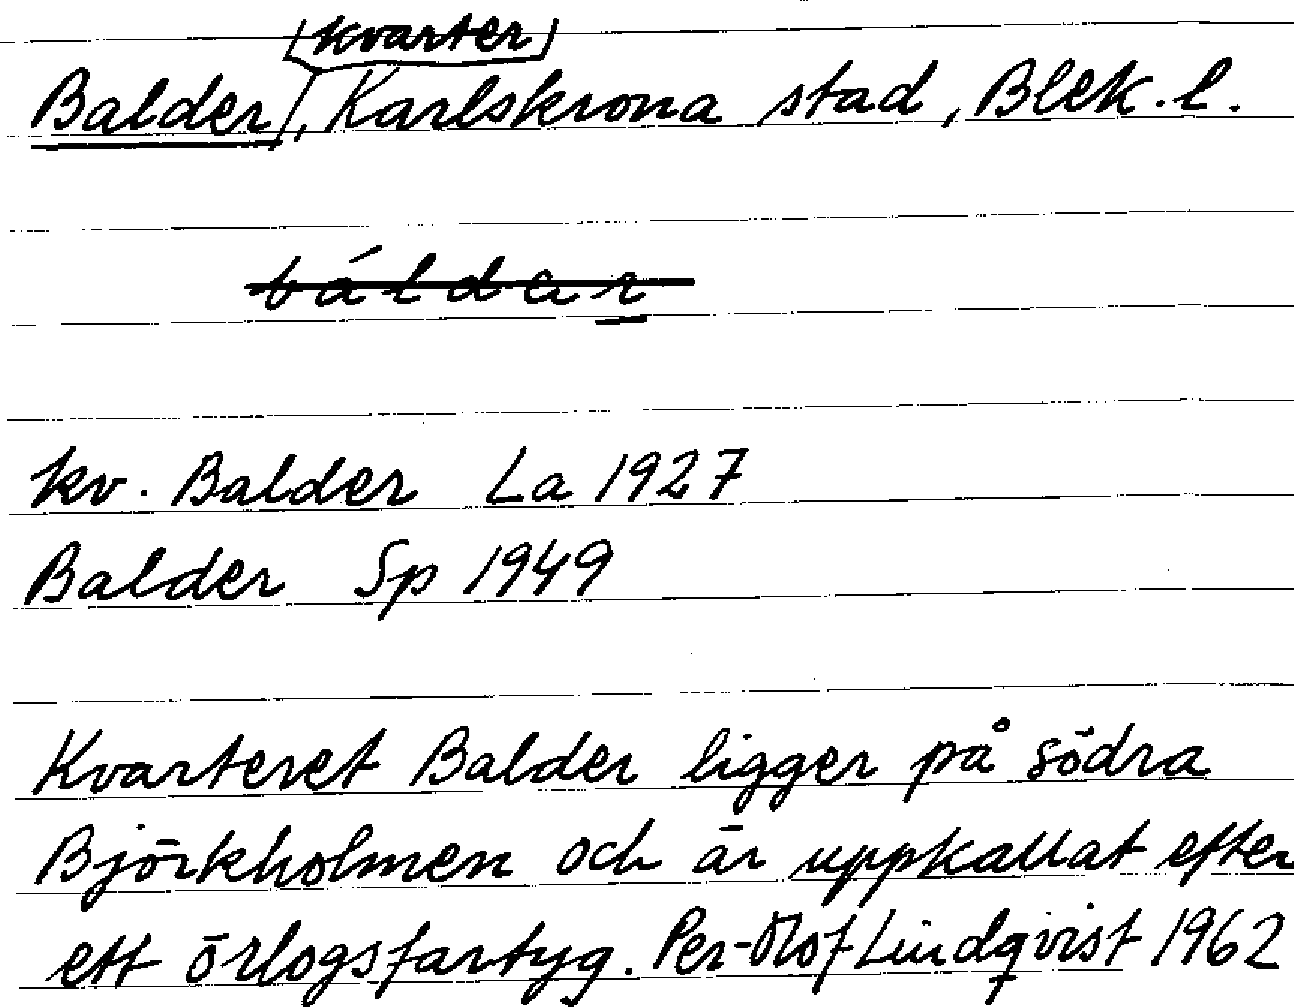 (kvarter)
Balder, Karlskrona stad, Blek. l.
báldar
kv. Balder La 1927
Balder Sp 1949
Kvarteret Balder ligger på södra
Björkholmen och är uppkallat efter
ett örlogsfartyg. Per-Olof Lindqvist 1962